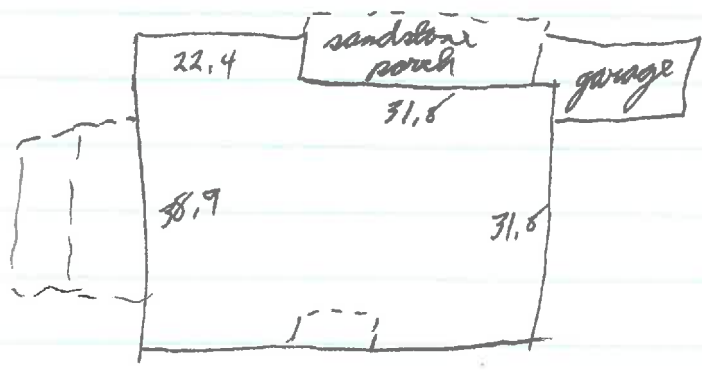 sandstone
porch
22,4
garage
31,8
38,9
31,8